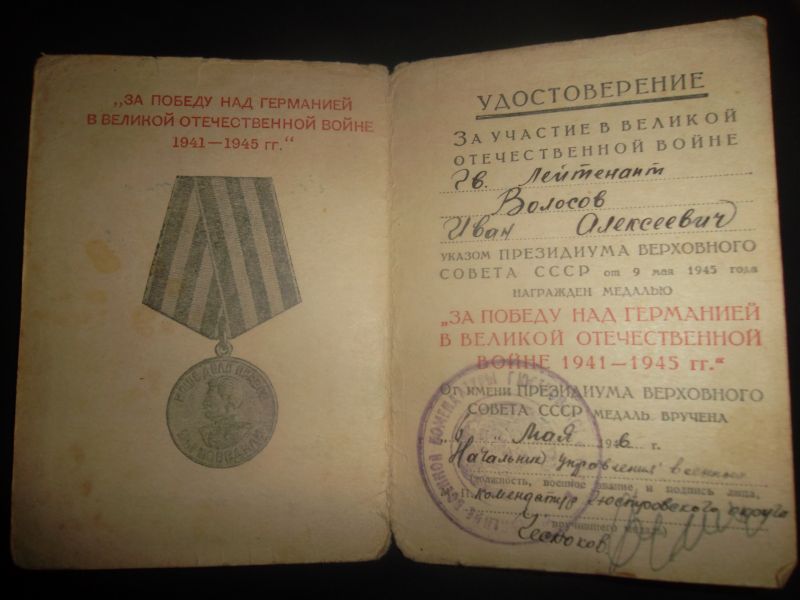 „ЗА ПОБЕДУ НАД ГЕРМАНИЕЙ
В ВЕЛИКОЙ ОТЕЧЕСТВЕННОЙ ВОЙНЕ
1941—1945 гг."
НАШЕ ДЕЛО ПРАВОЕ
МЫ ПОБЕДИЛИ
УДОСТОВЕРЕНИЕ
ЗА УЧАСТИЕ В ВЕЛИКОЙ
ОТЕЧЕСТВЕННОЙ ВОЙНЕ
Гв. Лейтенант
Волосов
Иван Алексеевич
УКАЗОМ ПРЕЗИДИУМА ВЕРХОВНОГО
СОВЕТА СССР от 9 мая 1945 года
НАГРАЖДЕН МЕДАЛЬЮ
„ЗА ПОБЕДУ НАД ГЕРМАНИЕЙ
В ВЕЛИКОЙ ОТЕЧЕСТВЕННОЙ
ВОЙНЕ 1941—1945 гг."
От имени ПРЕЗИДИУМА ВЕРХОВНОГО
СОВЕТА СССР МЕДАЛЬ ВРУЧЕНА
„6" Мая 1946 г.
Начальник управления военной
(должность, воинское звание и подпись лица,
комендатур Гюстровского округа
вручившего медаль)
Чесноков